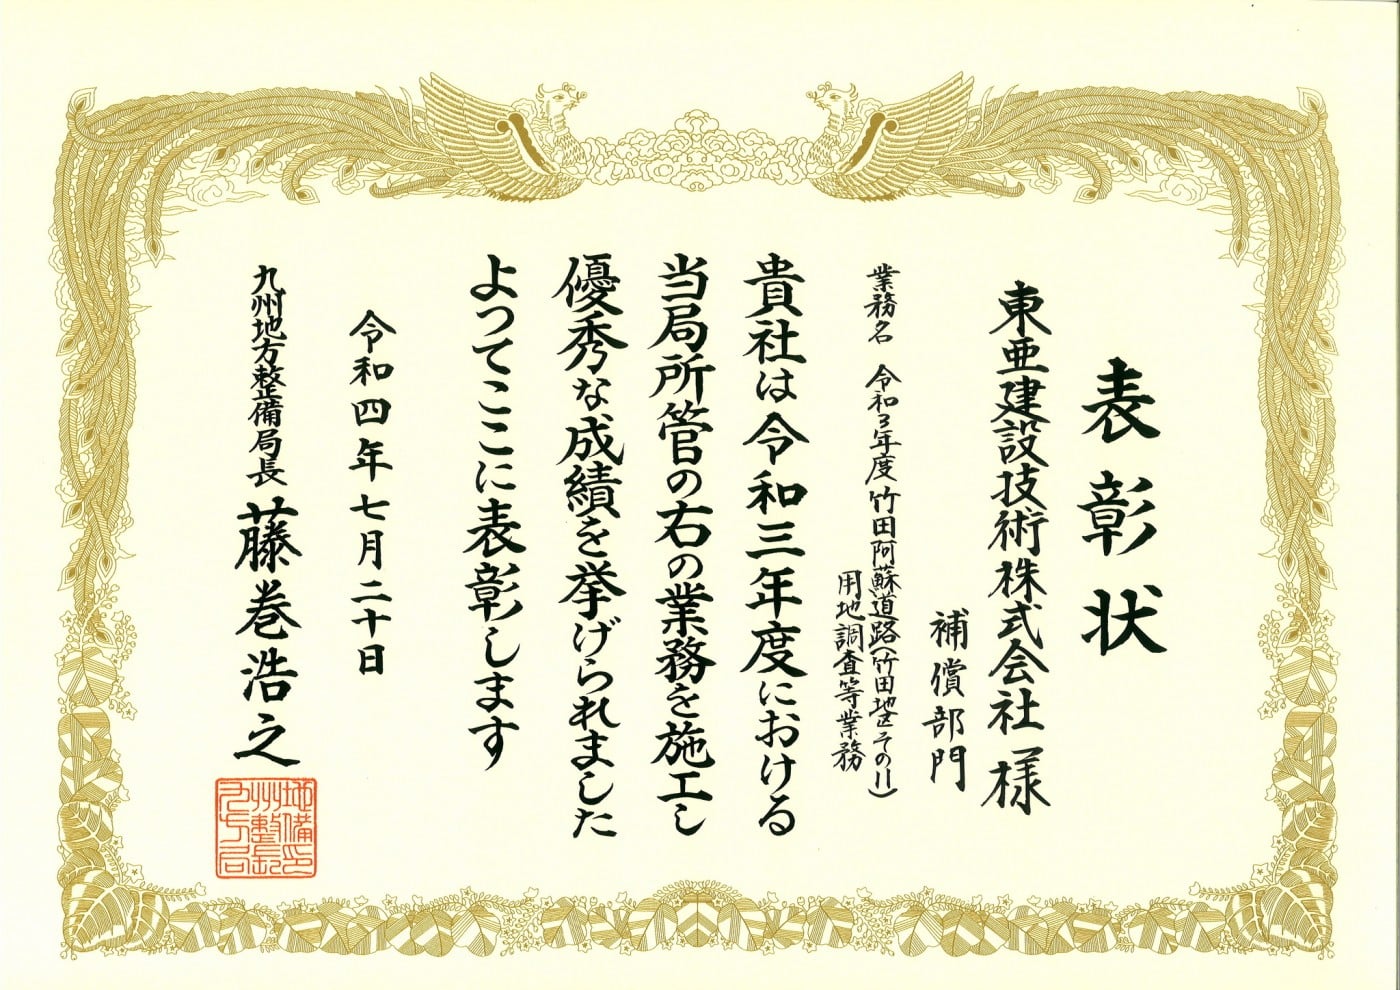 表彰状
東亜建設技術株式会社 様
補償部門
業務名 令和3年度竹田阿蘇道路(竹田地区その11)
用地調査等業務
貴社は令和三年度における
当局所管の右の業務を施工し
優秀な成績を挙げられました
よってここに表彰します
令和四年七月二十日
九州地方整備局長 藤巻浩之
九州地
方整備
局長印